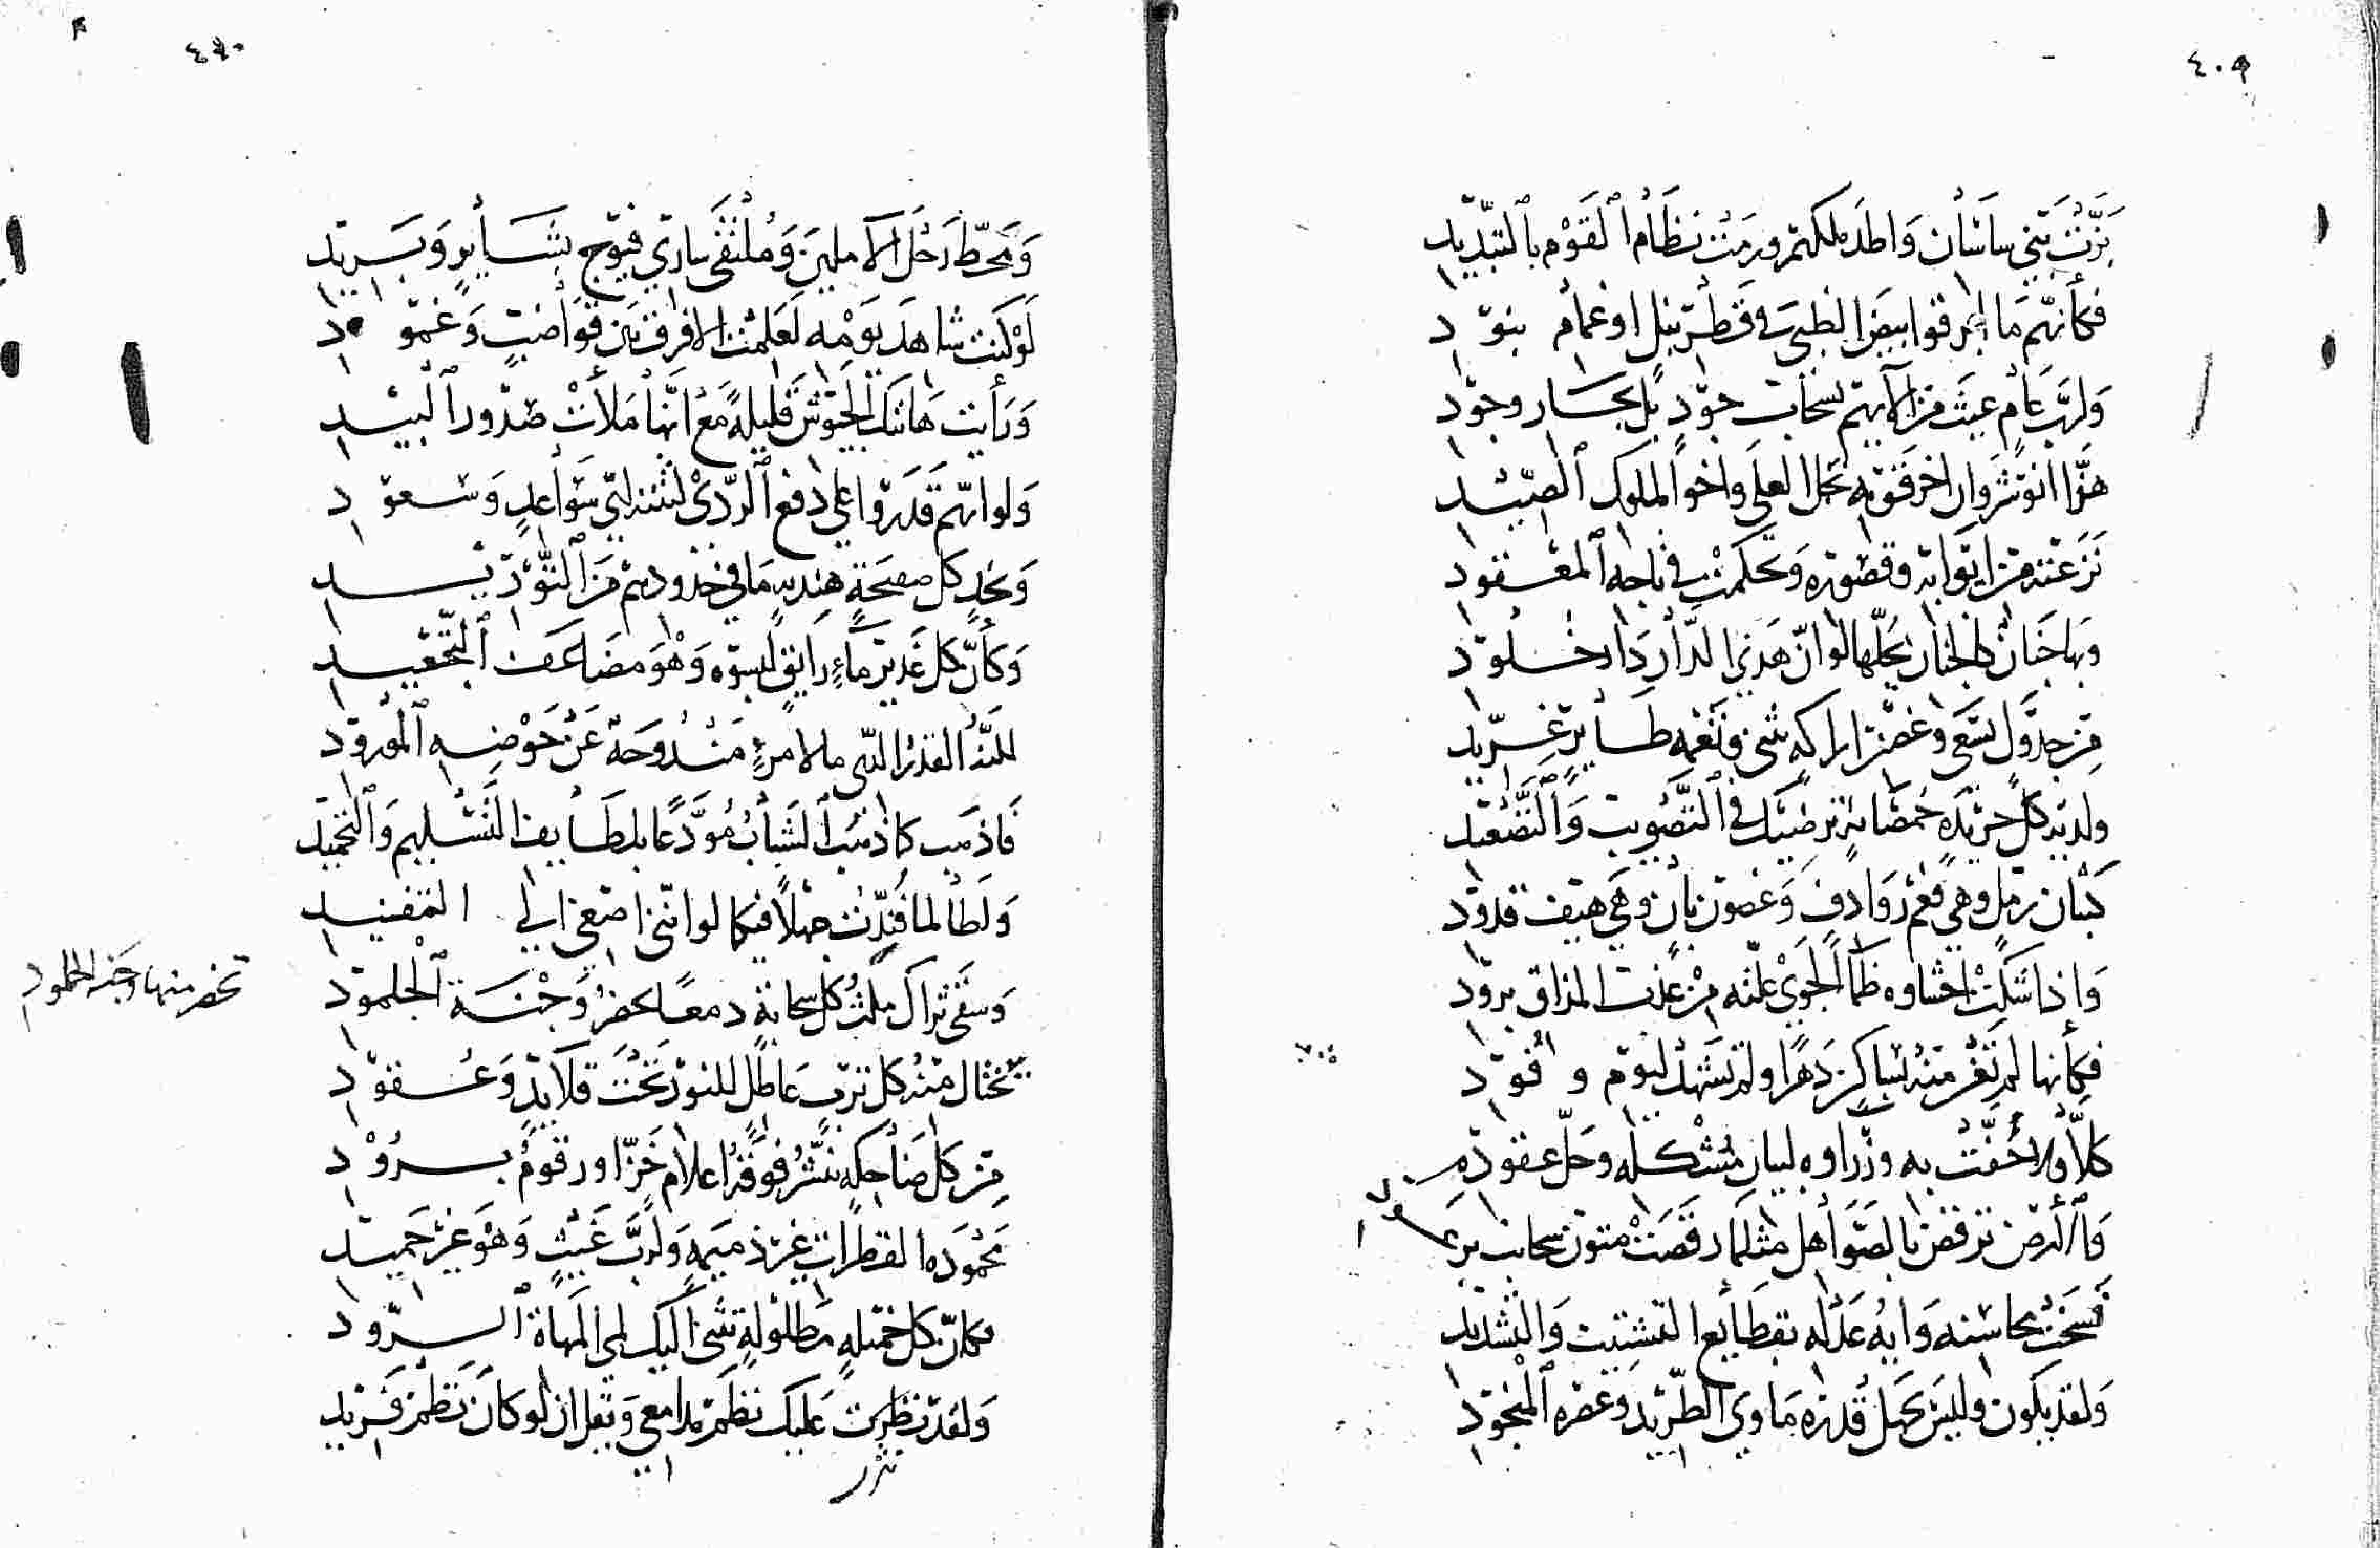 ٤٠٩
بزّت بني ساسان واطد ملكهم ورمت نظام القوم بالتبديد
فكأنهم ما اجر قوا بيض الظبى في قطر نبل او غمام بنود
ولرب عام غيث من آلايهم بسحاب جود بل بحار وجود
هذا انوشروان اخرق قومه تحمل العلى واخو الملوك الصيد
نزعته من ايوانه وقصوره وتحكمت في تاجه المعقود
وبها جنان كالجنان يحلها لو انّ هذي الدار دار خلود
من جدول يسعى وغصن اراكه شى ونغمه طاير غرّيد
ولديه كل خريده خمصانه ترضيك في التصويب والتصعيد
كثبان رمل وهي فعم روادف وغصون بان وهي هيف قدود
واذا شكت احشاوه ظمأ الجوى علته من عذب المذاق برود
فكأنها لم تغر منه بساكن دهرا ولم تشهد ليوم وفود
كلا ولا حُفّت به وزراوه لبيان مشكله وحلّ عقوده
والأرض ترقص بالصواهل مثلما رقصت متون سحايب برعود
فسخت محاسنه وايه عدله بقطايع التشتيت والتشديد
ولقد يكون وليس يجهل قدره ماوى الطريد وعصره المنجود
٤١٠
ومحطّ رحل الاملين وملتقى ساري فيوج بشاير وبريد
لو كنت شاهد يومه لعلمت الا فرق بين قواضب وغمود
ورأيت هاتيك الجيوش قليلة مع انها ملأت صدور البيد
ولو انهم قدروا على دفع الردى لثنته ايدي سواعد وسعود
وبخد كل صفيحة هنديه ما في خدودهم من التوريد
وكأن كل غدير ماء رايق لبسوه وهو مضاعف التجعيد
لله القدر الذي ما لامرئ مندوحة عن حوضه المورود
فاذهب كما ذهب الشباب مودّعا بلطايف التسليم والتحميد
ولطالما فُنّدت جهلا فيكما لو انني اصغي الى التفنيد
وسقى ثراك ملث كل سحابة دمعا يخضر وجنة الجلمود
تخضر منها وجنة الجلمود
تختال منه كل ترب عاطل للنور تحت قلايد وعقود
من كل ضاحكه تنشر فوقها اعلام خزّ او رقوم برود
محموده القطرات غير ذميمه ولرب غيث وهو غير حميد
فكأن كل خميله مطلوله تشى اليك لمى المهاة الرود
ولقد نظمت عليك نظم مدامعي ويقل ان لو كان نظم فريد
نثر